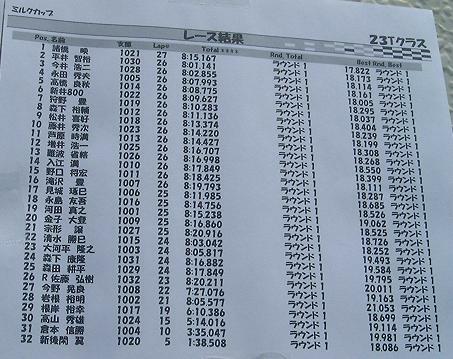 ミルクカップ
レース結果 23Tクラス
Pos. 名前 支部 Laps Total Rnd. Total Best Rnd. Best
1 諸橋 暎 1021 27 8:15.167 ラウンド 1 17.822 ラウンド 1
2 平井 智裕 1030 26 8:01.141 ラウンド 1 18.172 ラウンド 1
3 今井 浩二 1028 26 8:02.855 ラウンド 1 18.114 ラウンド 1
4 永田 秀夫 1005 26 8:07.993 ラウンド 1 18.161 ラウンド 1
5 高橋 良秋 1014 26 8:08.775 ラウンド 1 18.005 ラウンド 1
6 新井800 1022 26 8:09.627 ラウンド 1 18.295 ラウンド 1
7 狩野 豊 1019 26 8:10.283 ラウンド 1 18.037 ラウンド 1
8 森下 裕輔 1012 26 8:11.136 ラウンド 1 18.404 ラウンド 1
9 松井 喜好 1018 26 8:13.374 ラウンド 1 18.239 ラウンド 1
10 藤井 秀次 1023 26 8:14.220 ラウンド 1 18.149 ラウンド 1
11 芦原 時満 1013 26 8:14.427 ラウンド 1 18.308 ラウンド 1
12 増井 浩一 1025 26 8:16.707 ラウンド 1 18.268 ラウンド 1
13 難波 1026 26 8:16.998 ラウンド 1 18.550 ラウンド 1
14 入江 満 1010 26 8:17.849 ラウンド 1 18.399 ラウンド 1
15 野口 将宏 1011 26 8:18.425 ラウンド 1 18.111 ラウンド 1
16 滝沢 豊 1007 26 8:19.793 ラウンド 1 18.287 ラウンド 1
17 見城 琢巳 1006 25 8:11.985 ラウンド 1 18.685 ラウンド 1
18 永島 友吾 1016 25 8:14.756 ラウンド 1 18.526 ラウンド 1
19 河田 真之 1001 25 8:15.238 ラウンド 1 19.062 ラウンド 1
20 金子 大登 1009 25 8:16.860 ラウンド 1 18.525 ラウンド 1
21 宗形 譲 1027 25 8:20.916 ラウンド 1 18.726 ラウンド 1
22 清水 勝巳 1015 24 8:03.042 ラウンド 1 18.252 ラウンド 1
23 大河平 隆之 1003 24 8:05.817 ラウンド 1 19.493 ラウンド 1
24 森下 康隆 1031 24 8:16.882 ラウンド 1 19.584 ラウンド 1
25 森田 耕平 1029 24 8:17.849 ラウンド 1 19.795 ラウンド 1
26 R佐藤 弘樹 1032 23 8:20.211 ラウンド 1 20.011 ラウンド 1
27 今野 晃良 1008 22 7:27.076 ラウンド 1 19.163 ラウンド 1
28 岩根 裕明 1002 21 8:05.577 ラウンド 1 21.053 ラウンド 1
29 根岸 裕幸 1017 19 6:10.386 ラウンド 1 18.699 ラウンド 1
30 高山 秀雄 1024 15 5:14.016 ラウンド 1 19.114 ラウンド 1
31 倉本 信勝 1004 10 3:35.047 ラウンド 1 19.981 ラウンド 1
32 新後閑 翼 1020 5 1:38.508 ラウンド 1 18.086 ラウンド 1